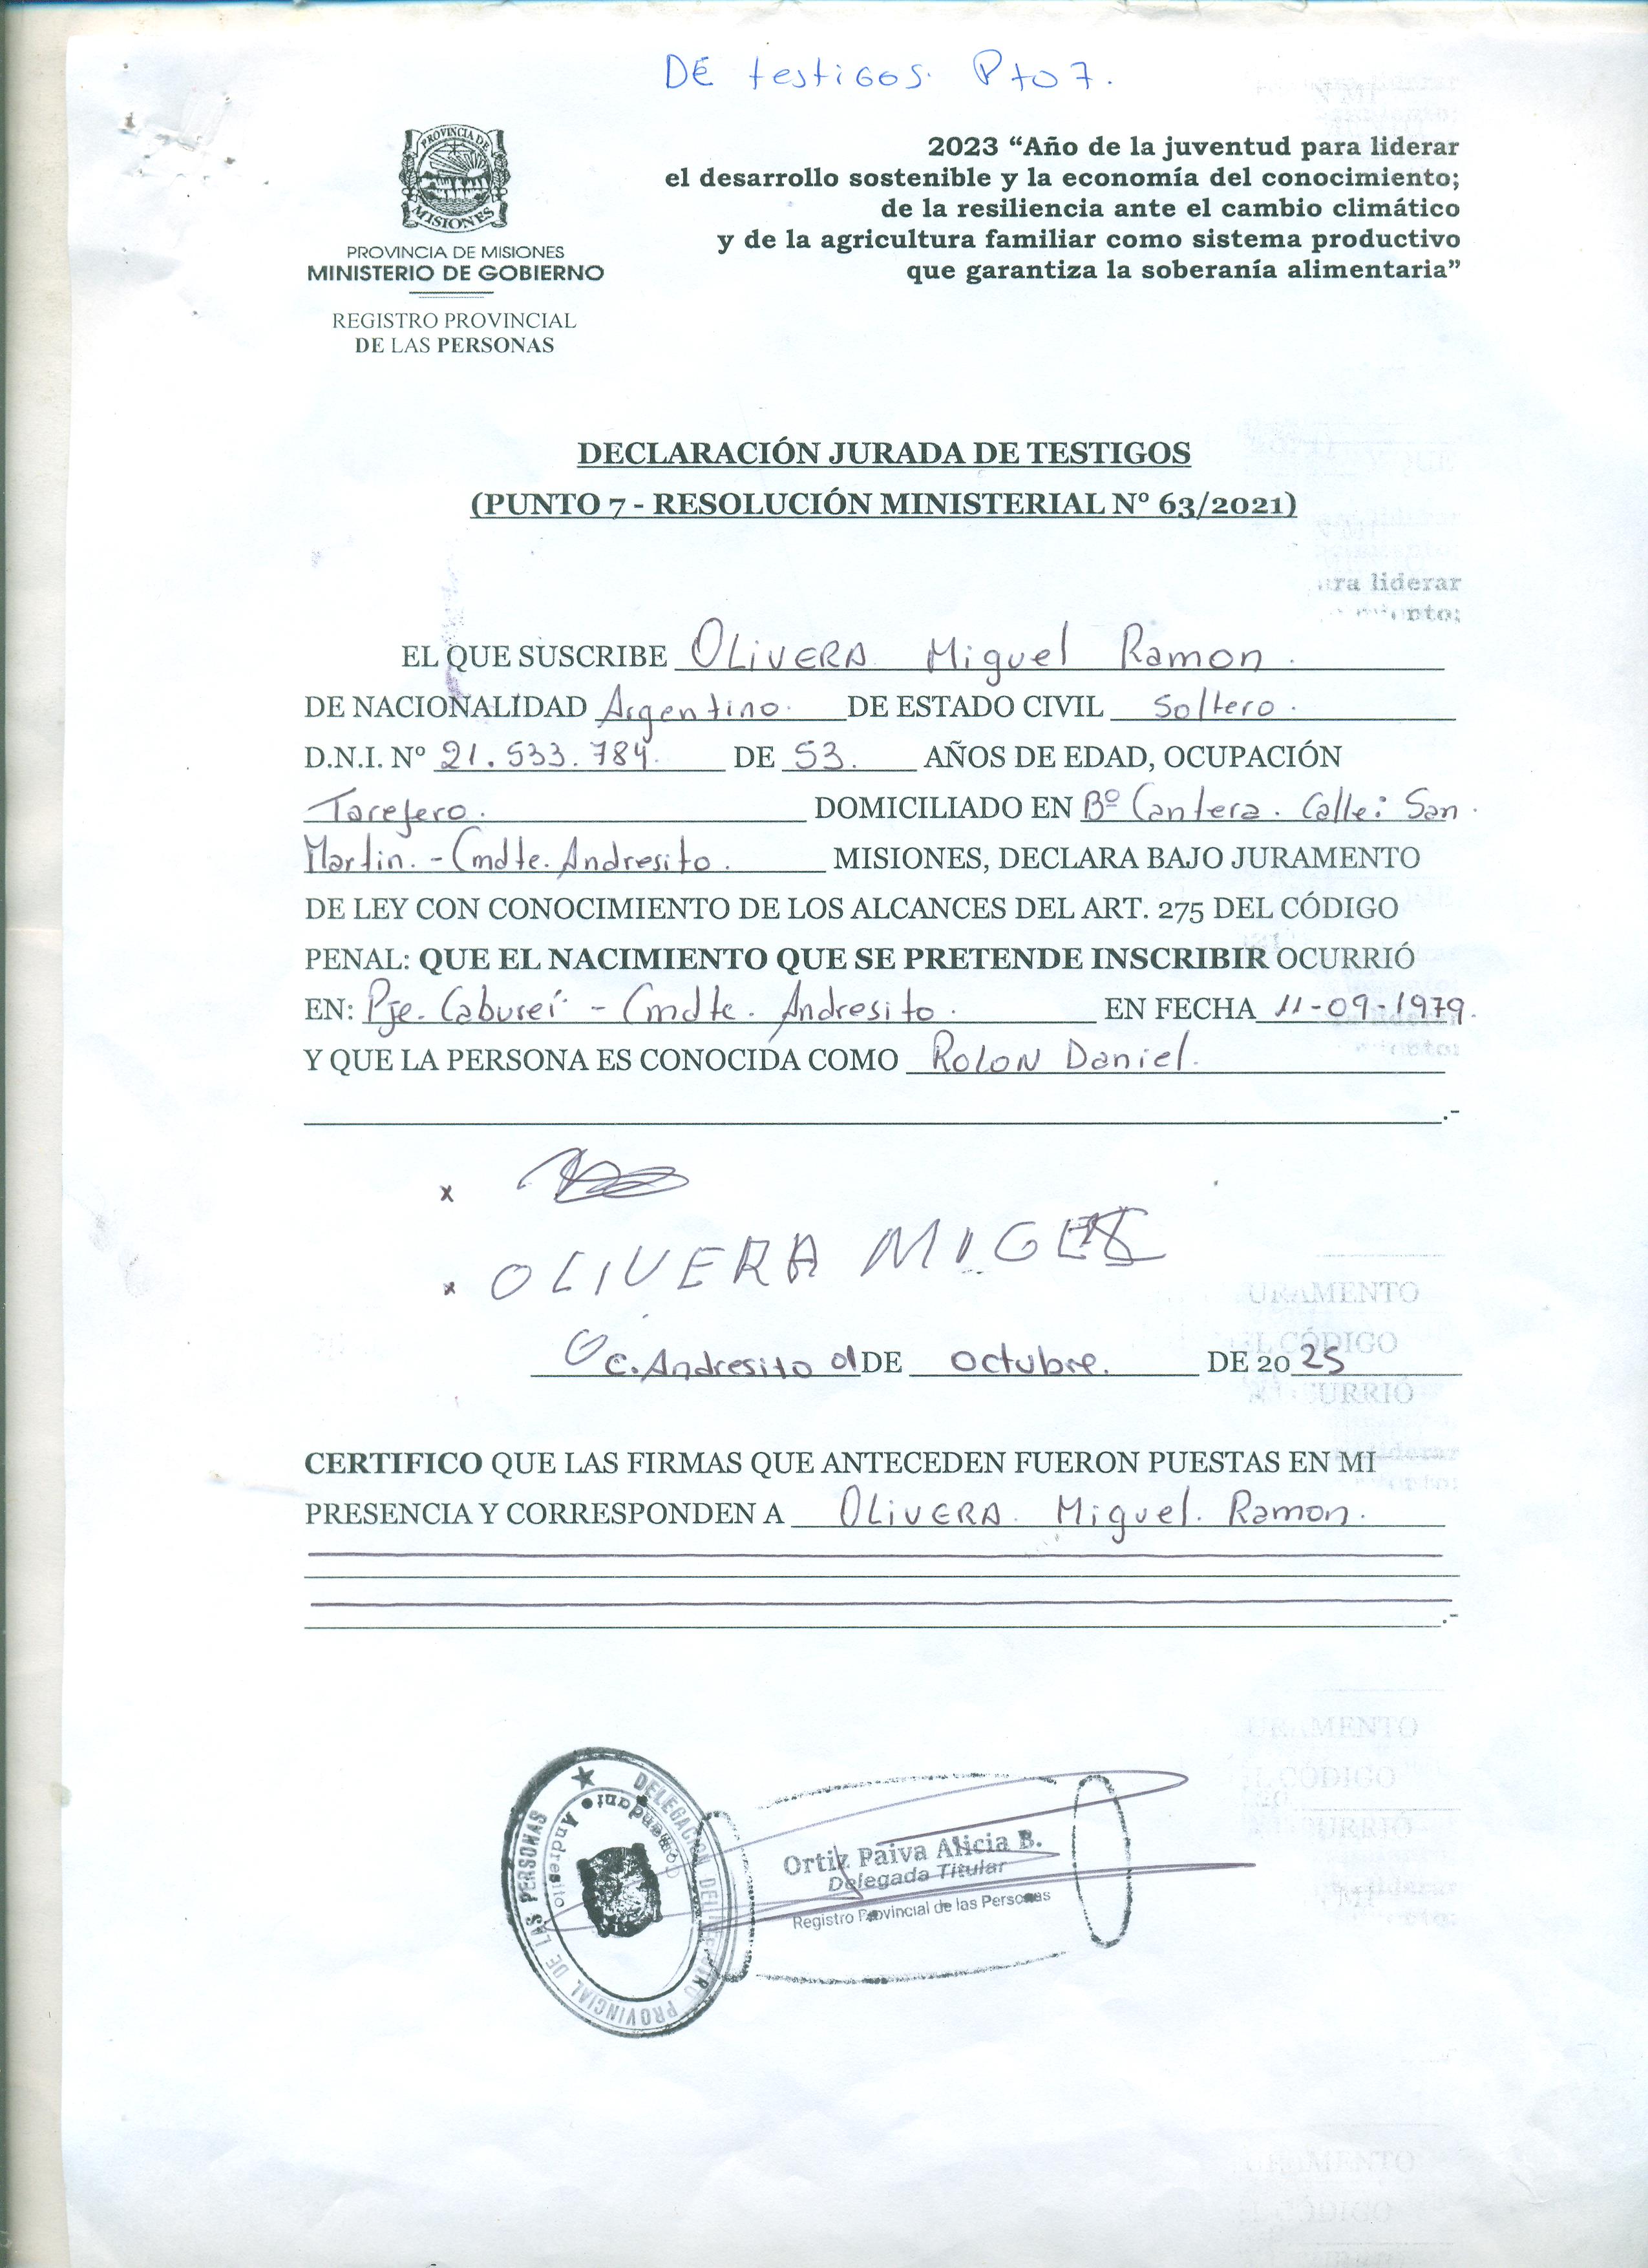 DE testigos. Pto 7.
PROVINCIA DE
MISIONES
PROVINCIA DE MISIONES
MINISTERIO DE GOBIERNO
REGISTRO PROVINCIAL
DE LAS PERSONAS
2023 “Año de la juventud para liderar
el desarrollo sostenible y la economía del conocimiento;
de la resiliencia ante el cambio climático
y de la agricultura familiar como sistema productivo
que garantiza la soberanía alimentaria”
DECLARACIÓN JURADA DE TESTIGOS
(PUNTO 7 - RESOLUCIÓN MINISTERIAL Nº 63/2021)
EL QUE SUSCRIBE OLIVERA Miguel Ramon.
DE NACIONALIDAD Argentino. DE ESTADO CIVIL Soltero.
D.N.I. Nº 21.533.784. DE 53. AÑOS DE EDAD, OCUPACIÓN
Tarefero. DOMICILIADO EN Bº Cantera. Calle: San
Martin. - Cmdte. Andresito. MISIONES, DECLARA BAJO JURAMENTO
DE LEY CON CONOCIMIENTO DE LOS ALCANCES DEL ART. 275 DEL CÓDIGO
PENAL: QUE EL NACIMIENTO QUE SE PRETENDE INSCRIBIR OCURRIÓ
EN: Pje. Cabureí - Cmdte. Andresito. EN FECHA 11-09-1979.
Y QUE LA PERSONA ES CONOCIDA COMO ROLON Daniel.
.-
x
x OLIVERA
C. Andresito 01 DE Octubre. DE 2025
CERTIFICO QUE LAS FIRMAS QUE ANTECEDEN FUERON PUESTAS EN MI
PRESENCIA Y CORRESPONDEN A OLIVERA Miguel. Ramon.
.-
DELEGACION DEL REGISTRO PROVINCIAL DE LAS PERSONAS
Comandante Andresito
Ortiz Paiva Alicia B.
Delegada Titular
Registro Provincial de las Personas